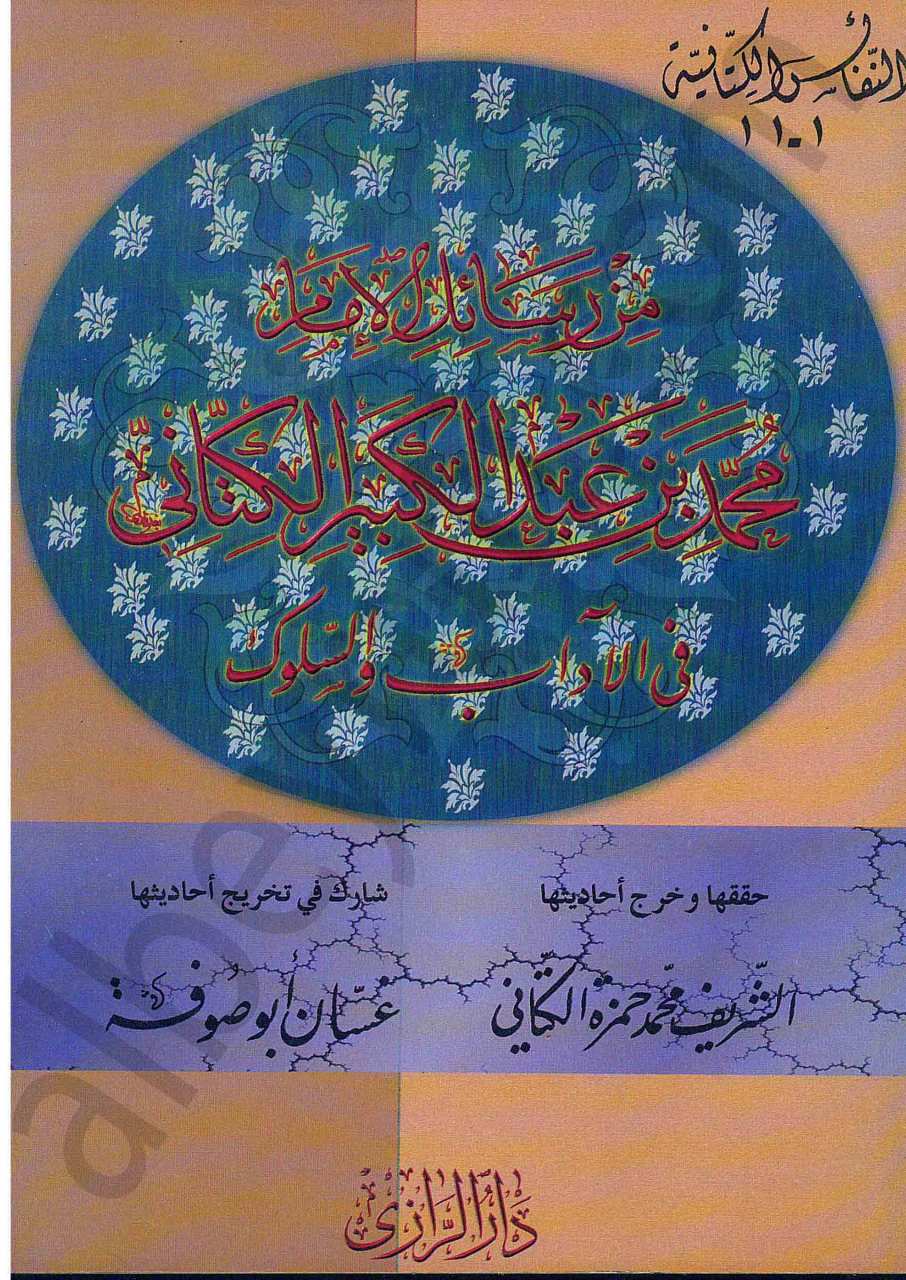 النفائس الكتانية
١ - ١١
من رسائل الإمام
محمد بن عبد الكبير الكتاني
في الآداب والسلوك
حققها وخرج أحاديثها
الشريف محمد حمزة الكتاني
شارك في تخريج أحاديثها
غسان أبو صوفة
دار الرازي